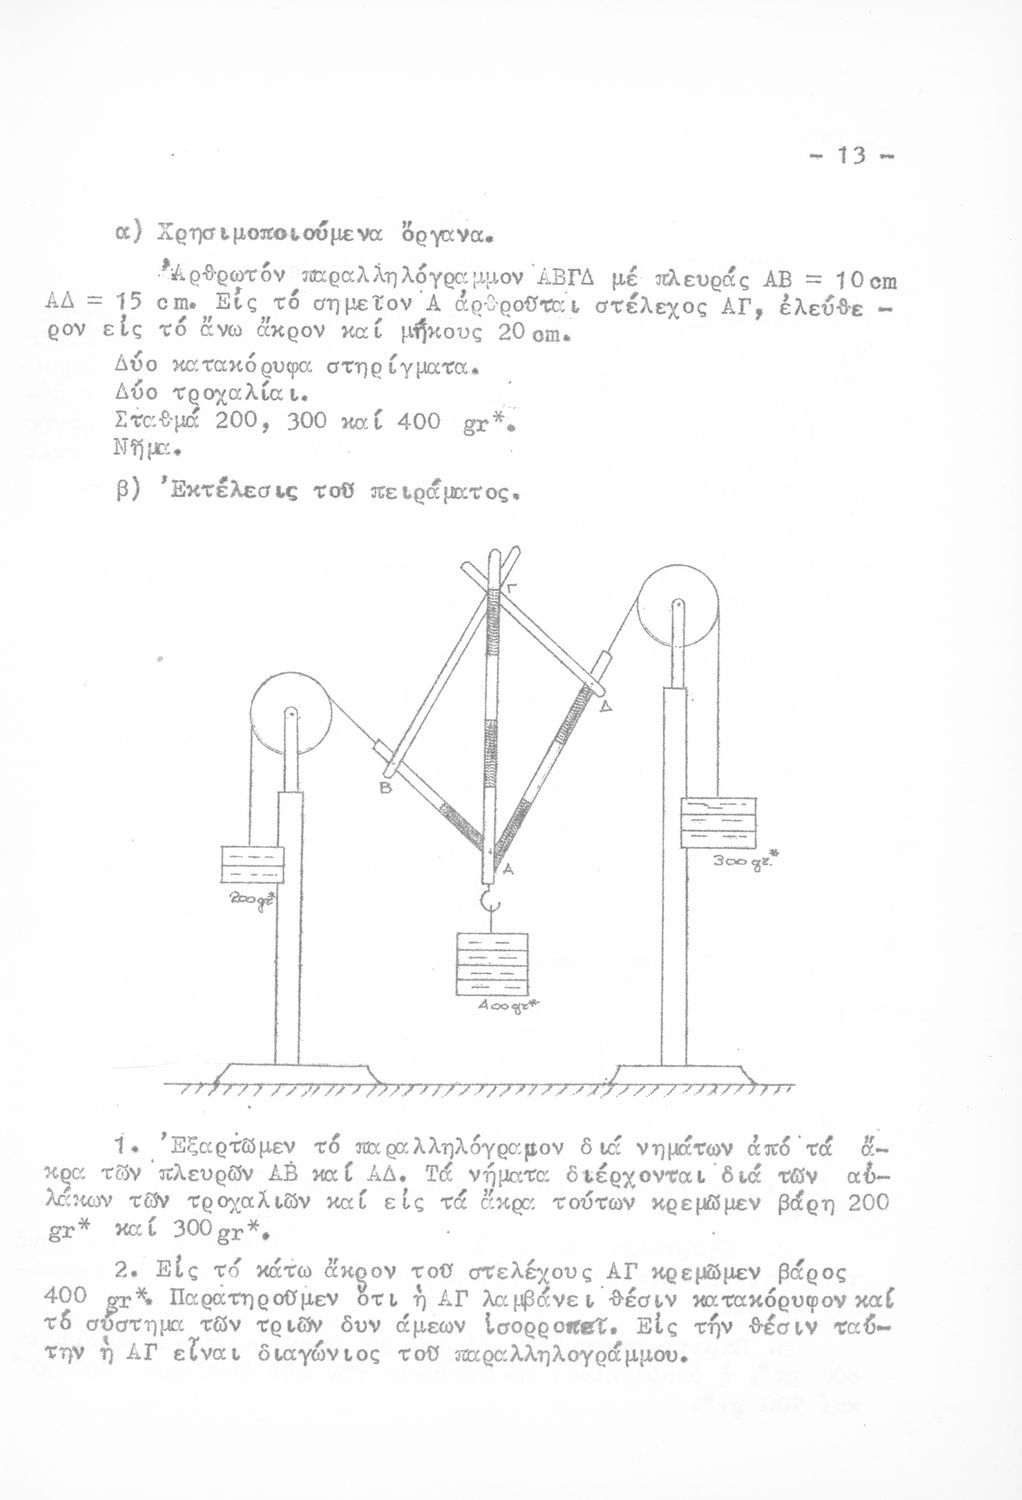 - 13 -
α) Χρησιμοποιούμενα ὄργανα.
Ἀρθρωτόν παραλληλόγραμμον ΑΒΓΔ μέ πλευράς ΑΒ = 10cm
ΑΔ = 15 cm. Εἰς τό σημεῖον Α ἀρθροῦται στέλεχος ΑΓ, ἐλεύθε -
ρον εἰς τό ἄνω ἄκρον καί μήκους 20cm.
Δύο κατακόρυφα στηρίγματα.
Δύο τροχαλίαι.
Σταθμά 200, 300 καί 400 gr*.
Νῆμα.
β) Ἐκτέλεσις τοῦ πειράματος.
Γ
Δ
Β
Α
300gr.*
200gr*
400gr*
1. Ἐξαρτῶμεν τό παραλληλόγραμμον διά νημάτων ἀπό τά ἄ-
κρα τῶν πλευρῶν ΑΒ καί ΑΔ. Τά νήματα διέρχονται διά τῶν αὐ-
λάκων τῶν τροχαλιῶν καί εἰς τά ἄκρα τούτων κρεμῶμεν βάρη 200
gr* καί 300gr*.
2. Εἰς τό κάτω ἄκρον τοῦ στελέχους ΑΓ κρεμῶμεν βάρος
400 gr*. Παρατηροῦμεν ὅτι ἡ ΑΓ λαμβάνει θέσιν κατακόρυφον καί
τό σύστημα τῶν τριῶν δυνάμεων ἰσορροπεῖ. Εἰς τήν θέσιν ταύ-
την ἡ ΑΓ εἶναι διαγώνιος τοῦ παραλληλογράμμου.